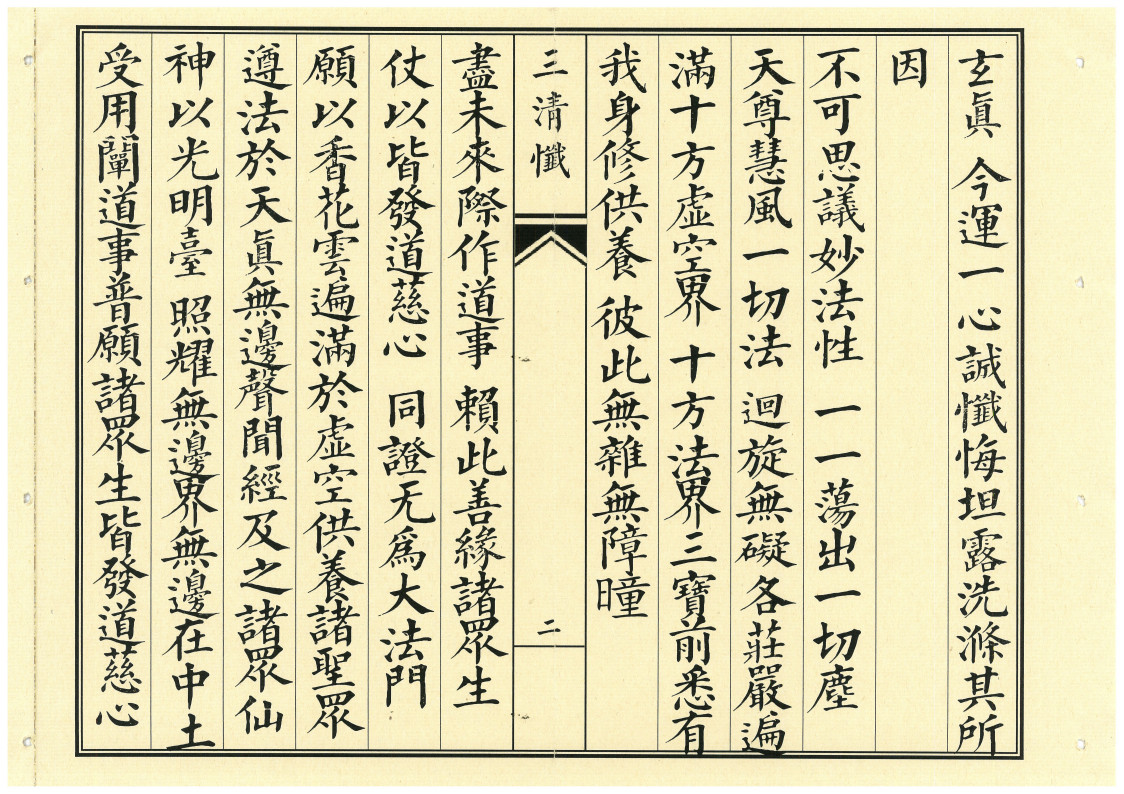 玄眞 今運一心誠懺悔坦露洗滌其所
因
不可思議妙法性 一一蕩出一切塵
天尊慧風一切法 迴旋無礙各莊嚴遍
滿十方虛空界 十方法界三寶前悉有
我身修供養 彼此無雜無障瞳
三清懺
二
盡未來際作道事 賴此善緣諸眾生
仗以皆發道慈心 同證无爲大法門
願以香花雲遍滿於虛空供養諸聖眾
遵法於天眞無邊聲聞經及之諸眾仙
神以光明臺 照耀無邊界無邊在中土
受用闡道事普願諸眾生皆發道慈心